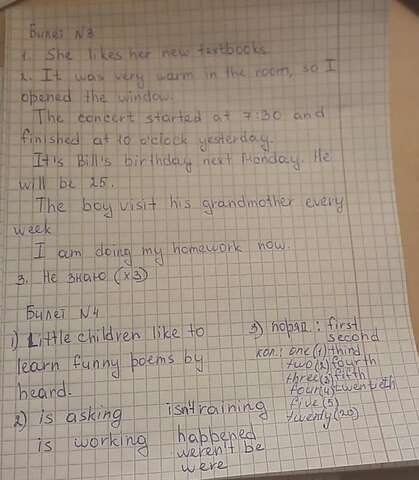 Билет N3
1. She likes her new textbooks.
2. It was very warm in the room, so I
opened the window.
The concert started at 7:30 and
finished at 10 o'clock yesterday.
It is Bill's birthday next Monday. He
will be 25.
The boy visit his grandmother every
week
I am doing my homework now.
3. Не знаю (x3)
Билет N4
1) Little children like to
learn funny poems by
heard.
2) is asking isn't raining
is working happened
weren't be
were
3) поряд.: first
second
кол.: one (1) third
two (2) fourth
three (3) fifth
four (4) twentieth
five (5)
twenty (20)